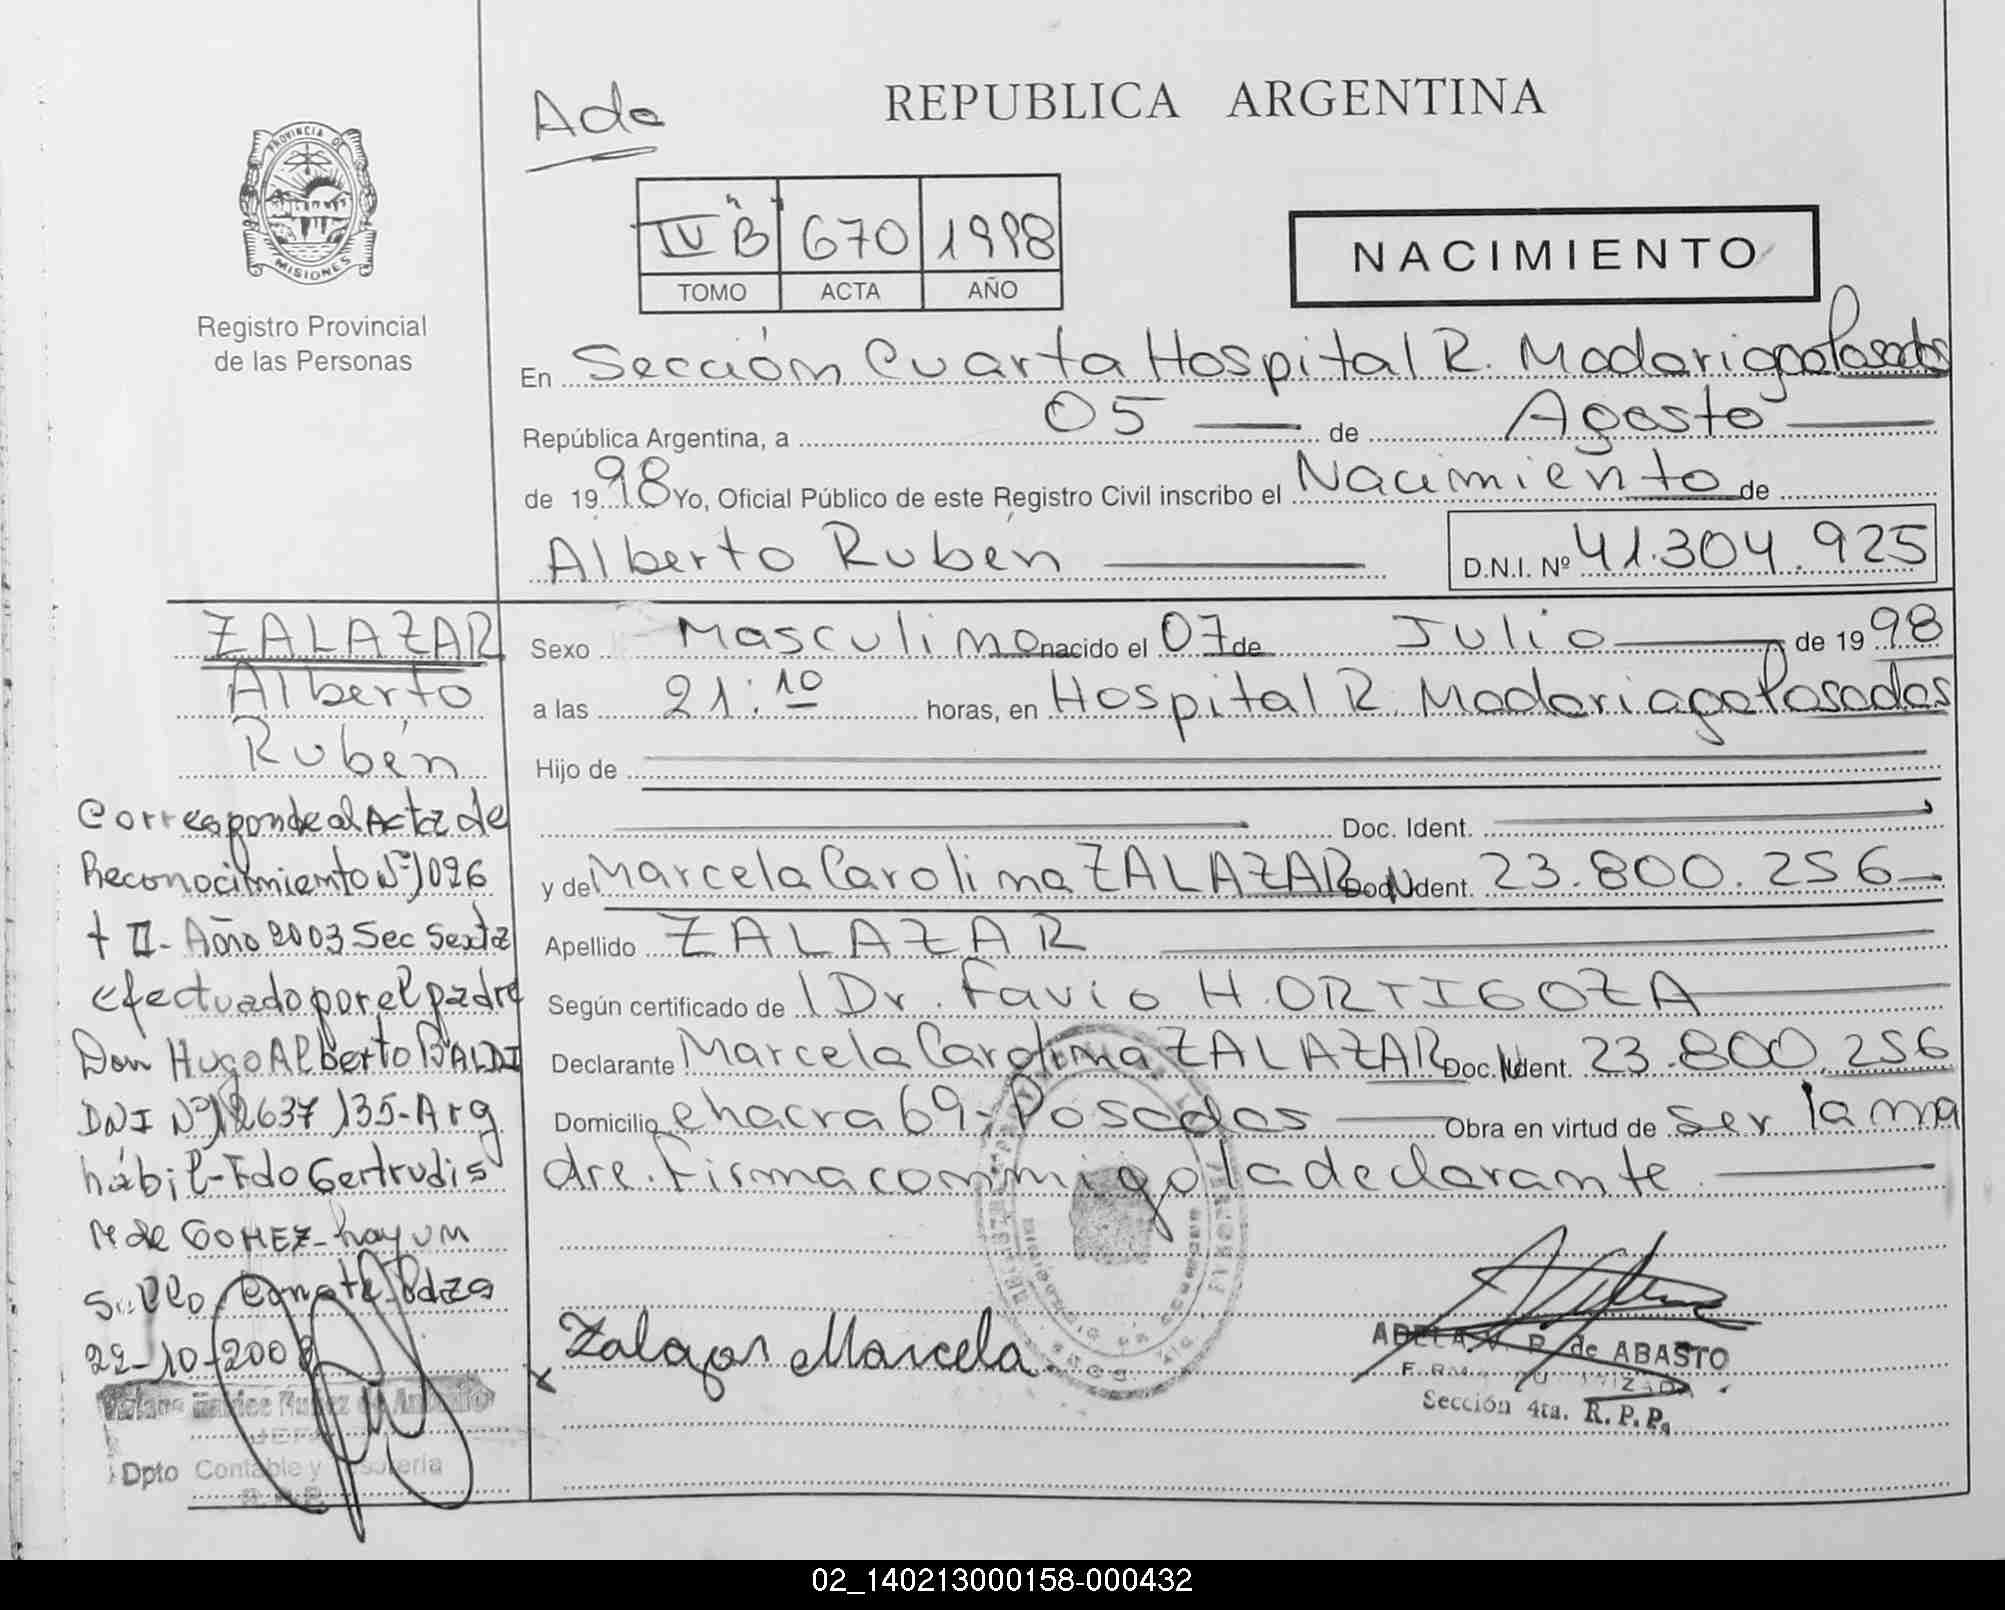 Ada
REPUBLICA ARGENTINA
PROVINCIA DE
MISIONES
Registro Provincial
de las Personas
IV "B" 670 1998
TOMO ACTA AÑO
NACIMIENTO
En Sección Cuarta Hospital R. Madariaga Posadas
República Argentina, a 05 de Agosto
de 1998 Yo, Oficial Público de este Registro Civil inscribo el Nacimiento de
Alberto Rubén D.N.I. Nº 41.304.925
ZALAZAR
Alberto
Rubén
Corresponde al Acta de
Reconocimiento Nº 1026
t II- Año 2003 Sec Sexta
efectuado por el padre
Don Hugo Alberto BALDI
DNI Nº 12637135-Arg
hábil-Fdo Gertrudis
N de GOMEZ-hay un
Sello. Conste. Pdas
22-10-2003
Dpto Contable y Tesorería
Sexo Masculino nacido el 07 de Julio de 1998
a las 21:10 horas, en Hospital R. Madariaga Posadas
Hijo de
Doc. Ident.
y de Marcela Carolina ZALAZAR Doc. Ident. 23.800.256
Apellido ZALAZAR
Según certificado de Dr. Favio H. ORTIGOZA
Declarante Marcela Carolina ZALAZAR Doc. Ident. 23.800.256
Domicilio chacra 69-Posadas Obra en virtud de ser la ma
dre. Firma conmigo la declarante
Zalazar Marcela
ADELA N. P. de ABASTO
FIRMA AUTORIZADA
Sección 4ta. R. P. P.
02_140213000158-000432